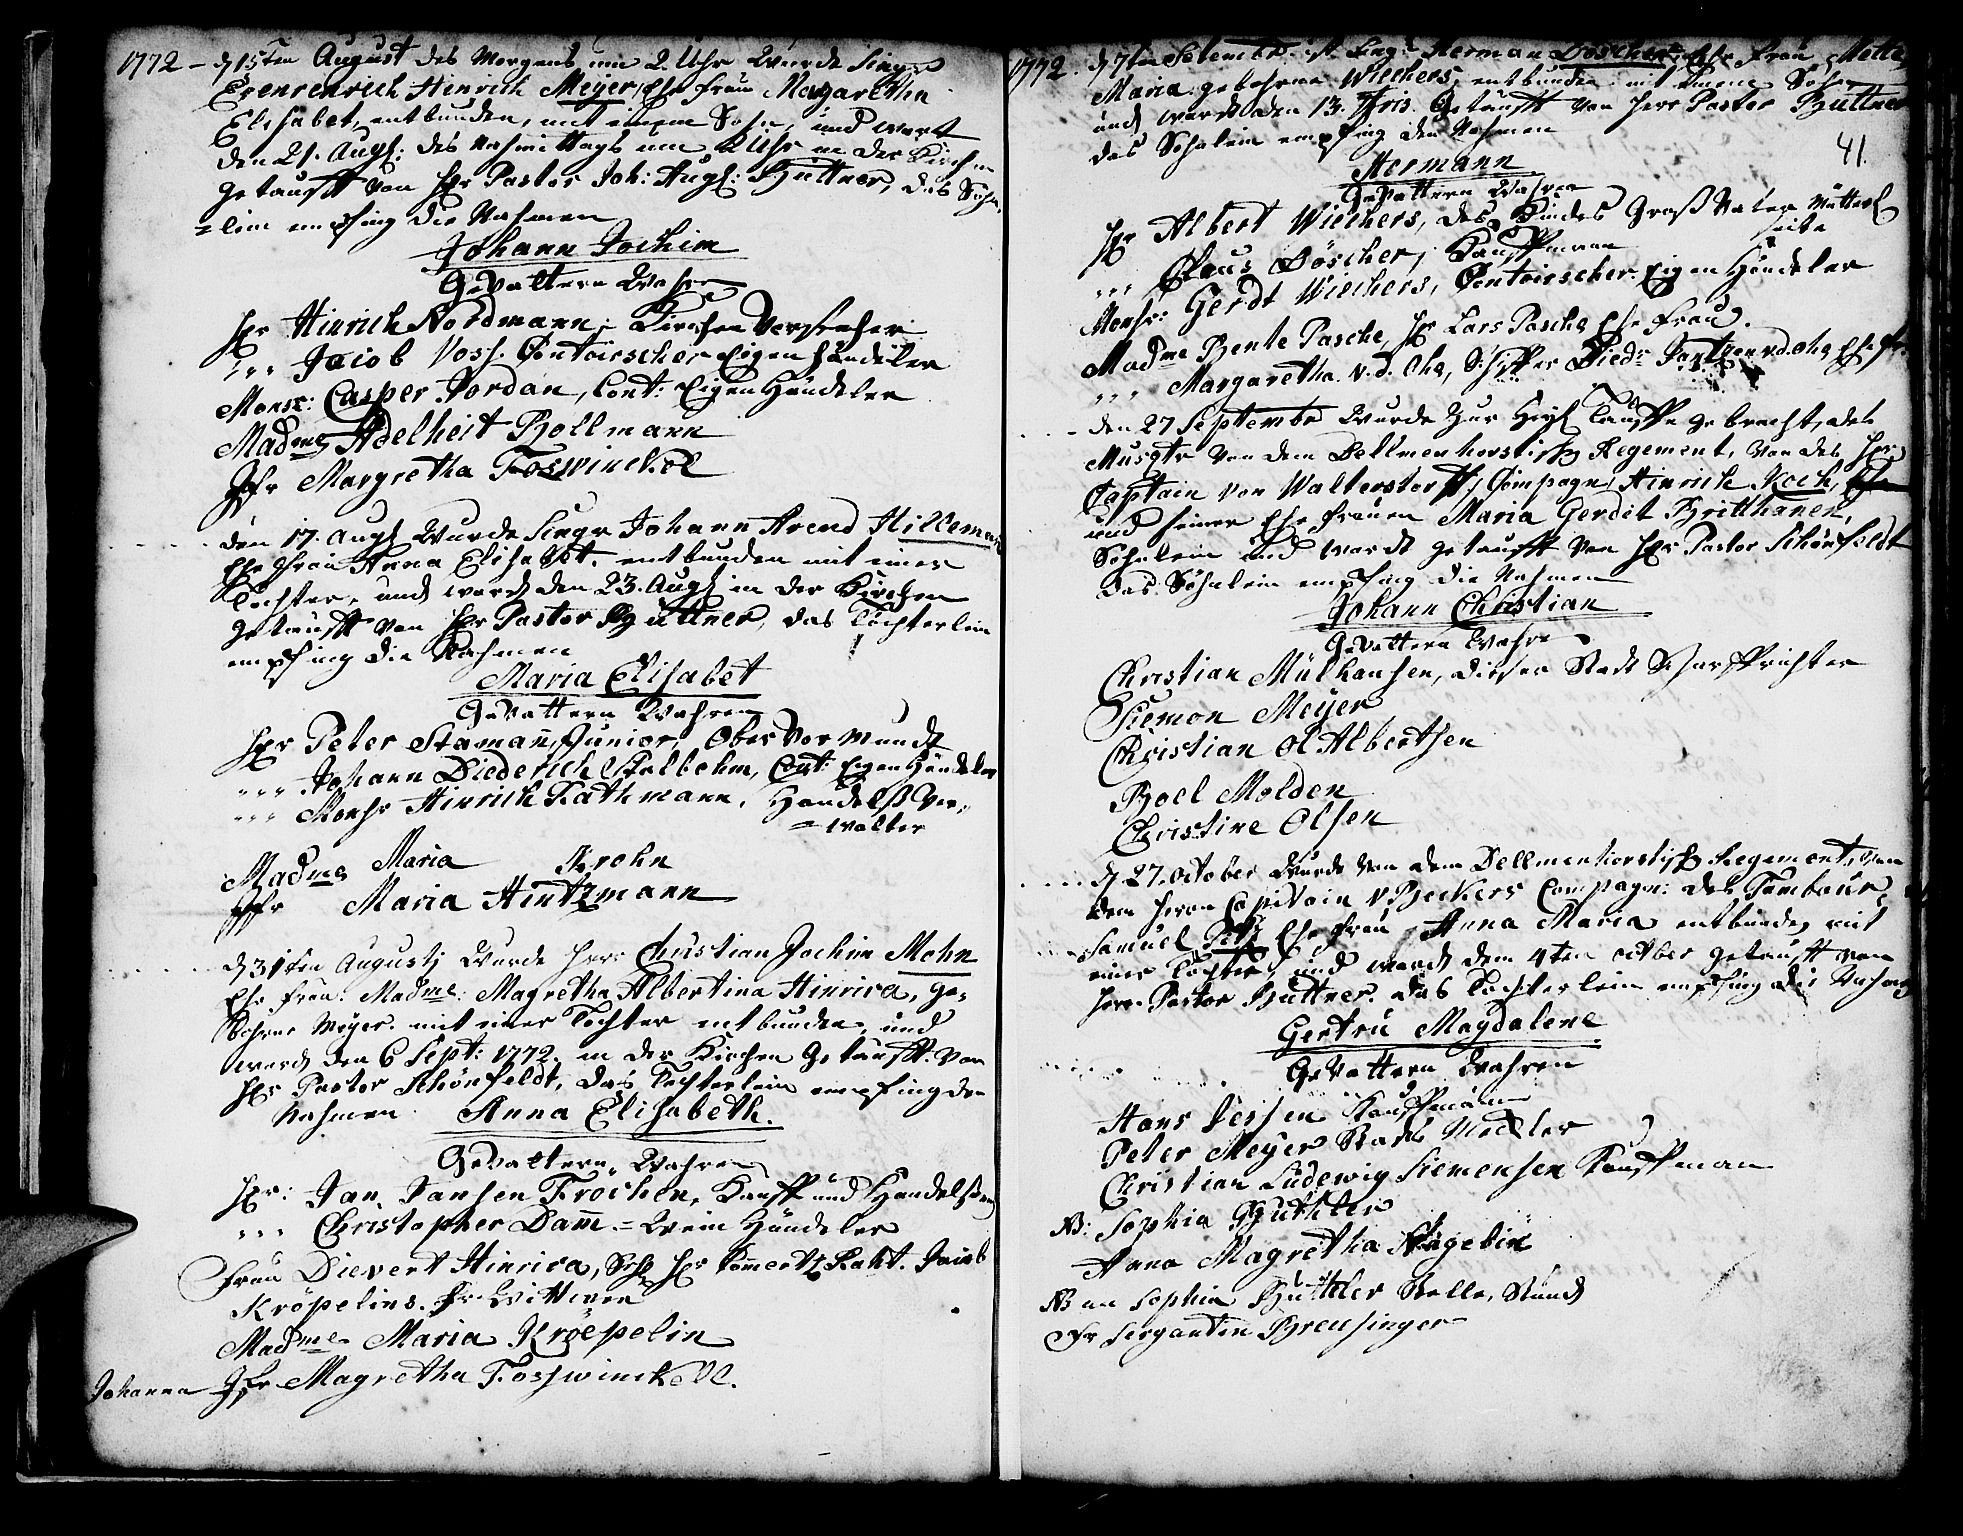 1772 – d 15ten August des Morgens um 2 Uhr Wurde Singr
Erenrenrich Hinrich Meyer, Ehe Frau Magaretha
Elisabet, entbunden, mit einem Sohn, und wart
den 21. Augst: des Nahmittags um 2 Uhr in der Kirchen
getaufft von Hr Pastor Joh: Augst: Büttner, das Söhn,
=lein empfing die Nahmen
Johann Jochim
Gevattern Wahren
Hr Hinrich Nordmann, Kirchen Vorsteher
,,, Jacob Voss. Contoirscher Eigen händeler
Monsr: Casper Jordan, Cont: Eigen Händeler
Madme Adelheit Bollmann
Jfr Margretha Foswinckel
den 17. Augst Wurde Singr Johann Arend Hilleman
Ehe Frau Anna Elisabet. entbunden mit einer
Tochter, und ward den 23. Augst in der Kirchen
getaufft von Hr Pastor Büttner, das Töchterlein
empfing die Nahmen
Maria Elisabet
Gevattern Wahren
Hr Peter Stamañ, Junior, Ober Vormundt
,,, Johann Diederich Stelbohm, Cont: Eigen Händeler
,,, Monsr Hinrich Rathmann, Handelß Ver,
=walter
Madme Maria Krohn
Jfr Maria Hintzmann
d 31ten Augusti Wurde Herr Christian Jochim Mohn
Ehe Frau: Madme: Magretha Albertina Hinrica, ge,
bohrne Meyer. mit einer Tochter entbunden, und
ward den 6 Sept: 1772. in der Kirchen Getaufft. von
Hr Pastor Schönfeldt, das Tochterlein empfing den
Nahmen Anna Elisabeth.
Gevattern Wahren
Hr: Jan Jansen Frochen, Kauff und Handelßman
,,, Christopher Dam̃ = Wein Händeler
Frau Dievert Hinrica, Hr Com̃ertz Raht. Jacob
Kröpelins. Fr. Wittwen
Madme Maria Kröepelin
Johanna Jfr Magretha Fosswinckell.
1772. d 7ten Setembr ist Singr Herman Döscher, Ehe Frau, Mette
Maria gebohrne Wiechers, entbunden mit einem Sohn
und ward den 13. Getaufft von Herr Pastor Büttner
das Söhnlein empfing den Nahmen
41.
Hermann
Gevattern Wahren
Hr Albert Wiechers, des Kindes Groß Vater Mütterl
seite
,,, Claus Döscher, Kauffmann
Monsr: Gerdt Wiechers, Contoirscher Eigen Händeler
Madme Bente Pasche, Hr Lars Pasche Ehe Frau
,,, Margaretha v. d. Ohe, Schiffer Diedr Jantzen v. d. Ohe Ehe fr.
den 27 Septembr Wurde zur Heyl Tauffe gebracht, des
Musqtr von dem Dellmenhorstisch Regement, von des Hr
Captain von Walterstorff, Compagni, Hinrich Koch,
und seiner Ehe Frauen Maria Gerdit Britthanen,
Söhnlein und wardt getaufft von Hr Pastor Schönfeldt
das Söhnlein empfing die Nahmen
Johann Christian
Gevattern Wahrn
Christian Mülhausen, dieser Stadt Scharffrichter
Siemon Meyer
Christian Ol Albertsen
Boel Molden
Christine Olsen
d 27. october Wurde von dem Dellmenhorstisch Regement, von
dem Herrn Capitain v Beckers Compagni: des Tambour,
Samuel Ehe Frau Anna Maria entbunden mit
einer Tochter, und ward den 4ten octber getaufft von
Herr Pastor Büttner. das Tochterlein empfing die Nahmen
Gertru Magdalene
Gevattern Wahren
Hans Jessen Kauffman
Peter Meyer Stads Meckler
Christian Ludewig Siemensen Kauffman
NB: Sophia Büthler
Anna Magretha Nagelin
NB an Sophia Büttler Stelle, stund
Fr Sergantin Breusinger